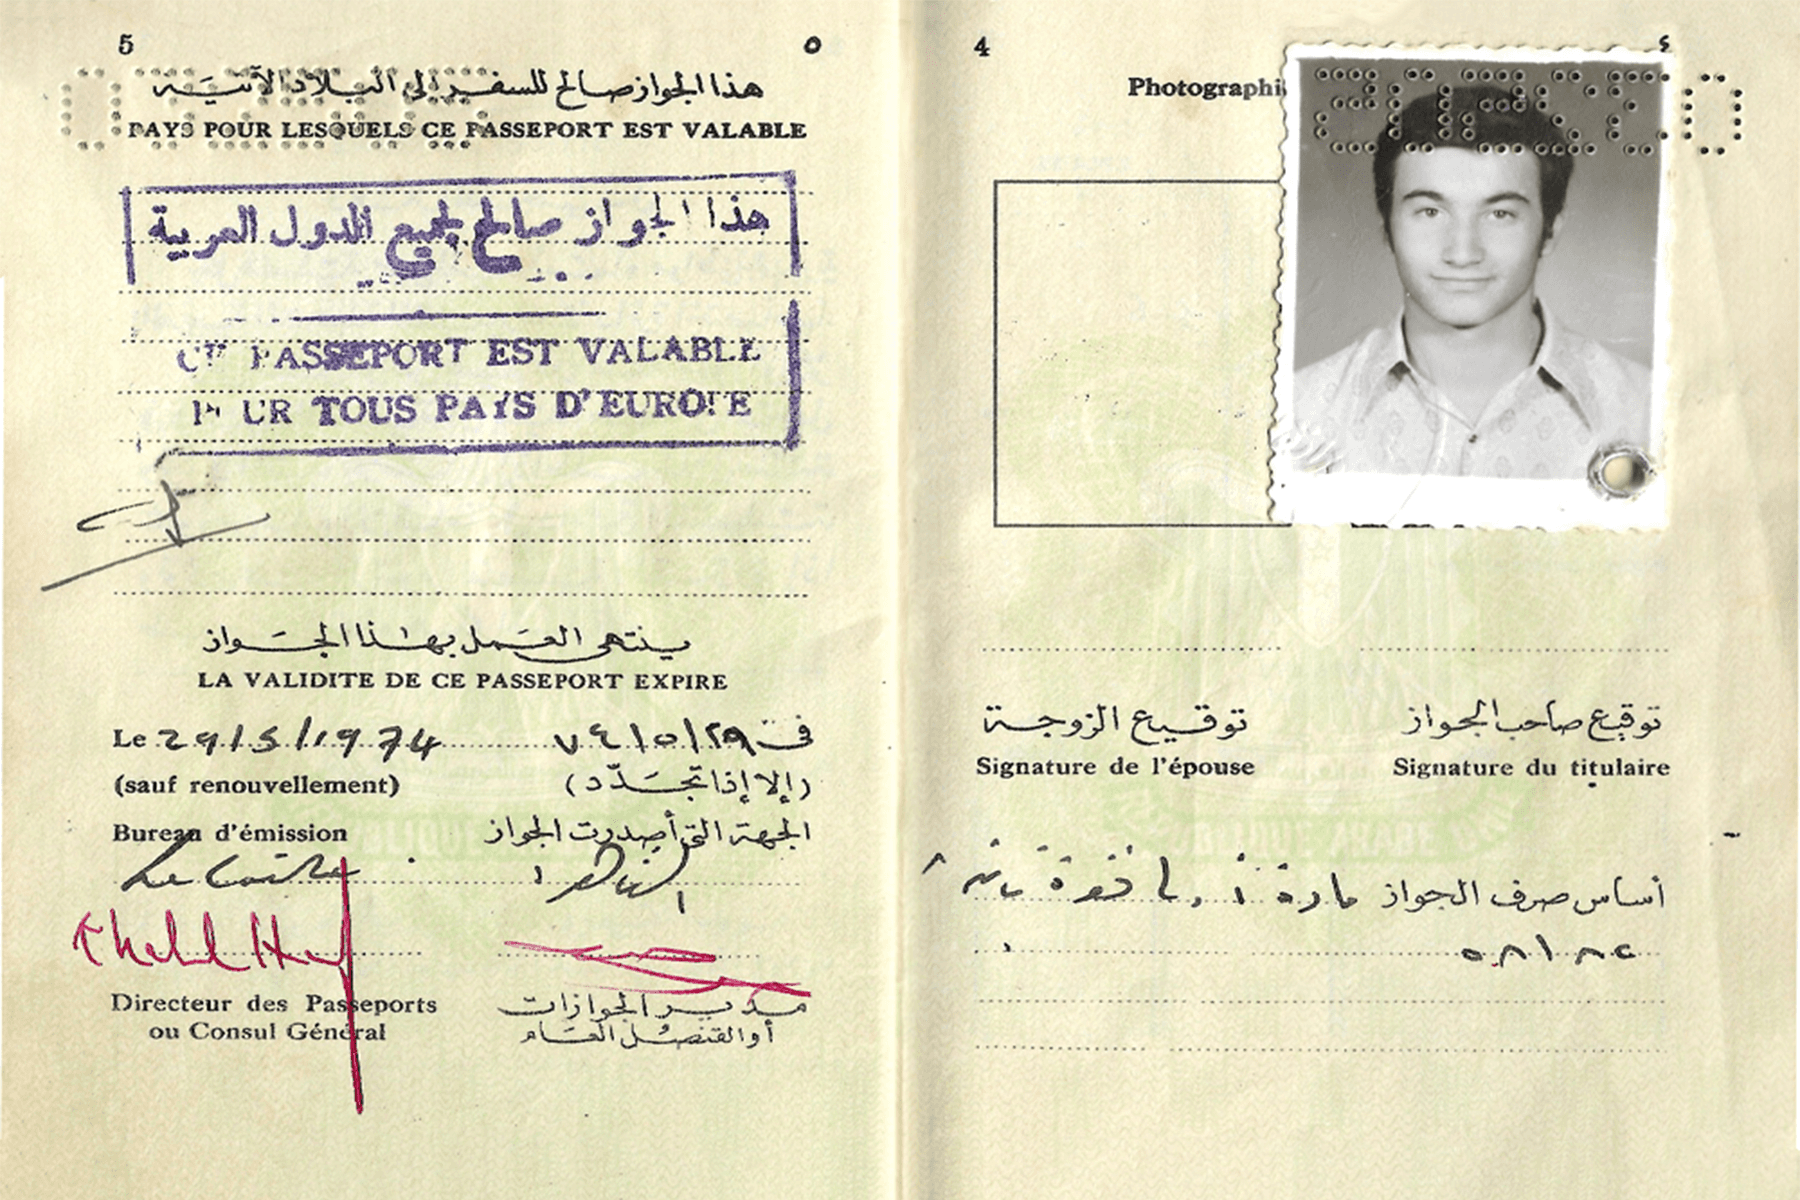 5 ٥
هذا الجواز صالح للسفر إلى البلاد الآتية
PAYS POUR LESQUELS CE PASSEPORT EST VALABLE
هذا الجواز صالح لجميع الدول العربية
CE PASSEPORT EST VALABLE
POUR TOUS PAYS D'EUROPE
ينتهى العمل بهذا الجواز
LA VALIDITE DE CE PASSEPORT EXPIRE
Le 29/5/1974 فى ٧٤/٥/٢٩
(sauf renouvellement) (إلا إذا تجدّد)
Bureau d'émission الجهة التى أصدرت الجواز
Le Caire القاهرة
Directeur des Passeports مدير الجوازات
ou Consul Général أو القنصل العام
4 ٤
Photographi
توقيع الزوجة توقيع صاحب الجواز
Signature de l'épouse Signature du titulaire
أساس صرف الجواز مادة فقرة